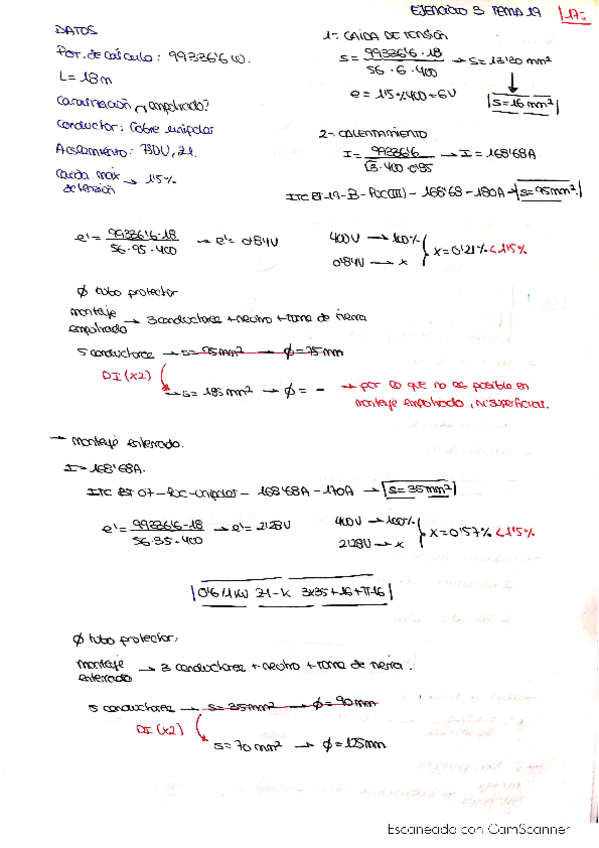 EJERCICIO 3 TEMA 19
DATOS
Pot. de cálculo: 99336'6 W.
L = 18 m
Canalización ¿empotrado?
Conductor: Cobre unipolar
Aislamiento: 750V, 21.
Caída max de tensión → 1'5%
1- CAIDA DE TENSIÓN
S = 99336'6 · 18 / 56 · 6 · 400 → S = 13'30 mm²
↓
e = 1'5% 400 = 6V
S = 16 mm²
2- CALENTAMIENTO
I = 99336'6 / √3 · 400 · 0'85 → I = 168'68A
ITC BT-19-B-PVC(III) - 168'68 - 180A → S = 95mm²
e' = 99336'6 · 18 / 56 · 95 · 400 → e' = 0'84V
400V → 100%
0'84V → x
x = 0'21% < 1'5%
Ø tubo protector
montaje empotrado → 3 conductores + neutro + toma de tierra
5 conductores → S = 95mm² → Ø = 75mm
DI (x2)
→ S = 185 mm² → Ø = - → por lo que no es posible en
montaje empotrado, ni superficial.
→ montaje enterrado.
I = 168'68A.
ITC BT 07 - PVC - unipolar - 168'68A - 170A → S = 35mm²
e' = 99336'6 · 18 / 56 · 35 · 400 → e' = 2'28V
400V → 100%
2'28V → x
x = 0'57% < 1'5%
0'6/1KV 21-K 3x35+16+TT16
Ø tubo protector,
montaje enterrado → 3 conductores + neutro + toma de tierra.
5 conductores → S = 35mm² → Ø = 90mm
DI (x2)
S = 70 mm² → Ø = 125mm
Escaneado con CamScanner